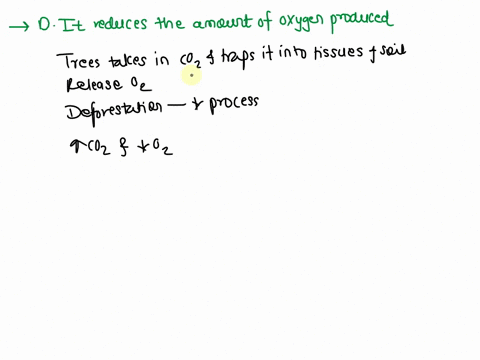 → D. It reduces the amount of oxygen produced
Trees takes in CO2 & traps it into tissues & soil
Release O2
Deforestation — ↓ process
↑CO2 & ↓O2